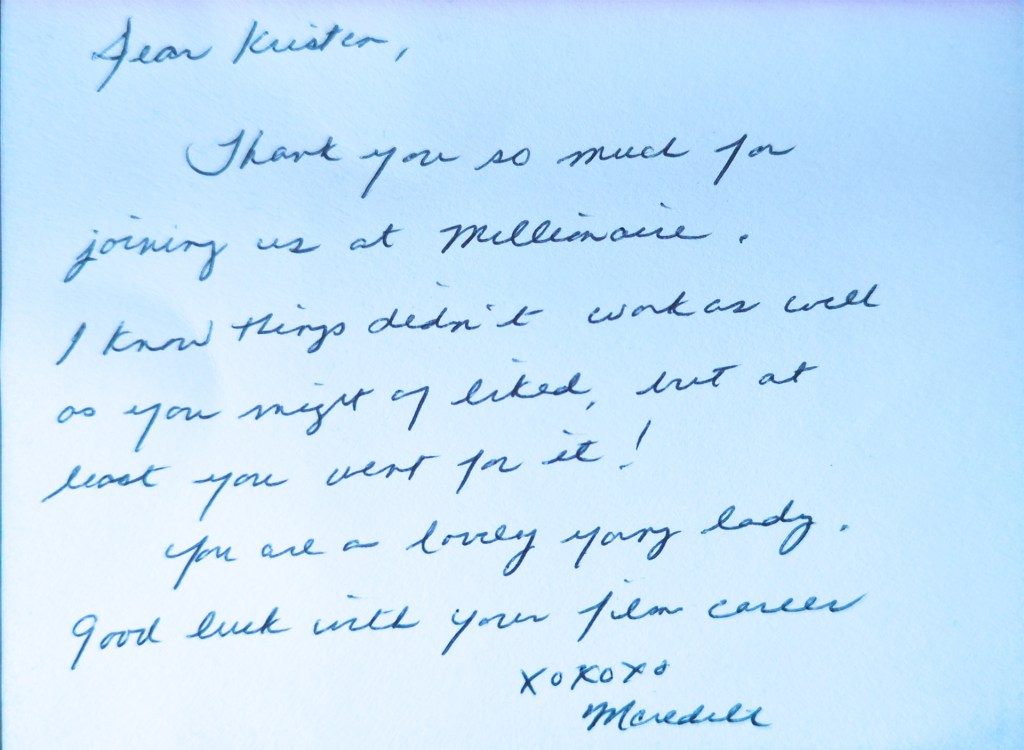 Dear Kristen,
Thank you so much for
joining us at Millionaire.
I know things didn't work as well
as you might of liked, but at
least you went for it!
You are a lovely young lady.
Good luck with your film career
xoxoxo
Meredith